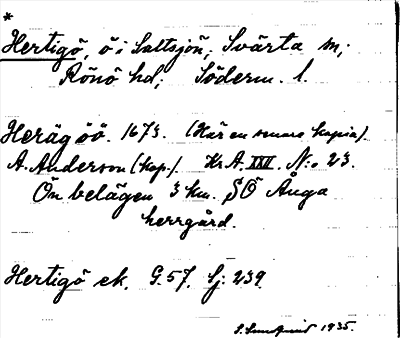 *
Hertigö, ö i Saltsjön; Svärta sn;
Rönö hd; Söderm. l.
Herägöö. 1673. (Här en senare kopia).
A. Anderson (kop.). Kr.A. XXI. N:o 23.
Ön belägen 3 km. SÖ Ånga
herrgård.
Hertigö ek. G. 57. Sj: 239.
S. Lundquist 1935.